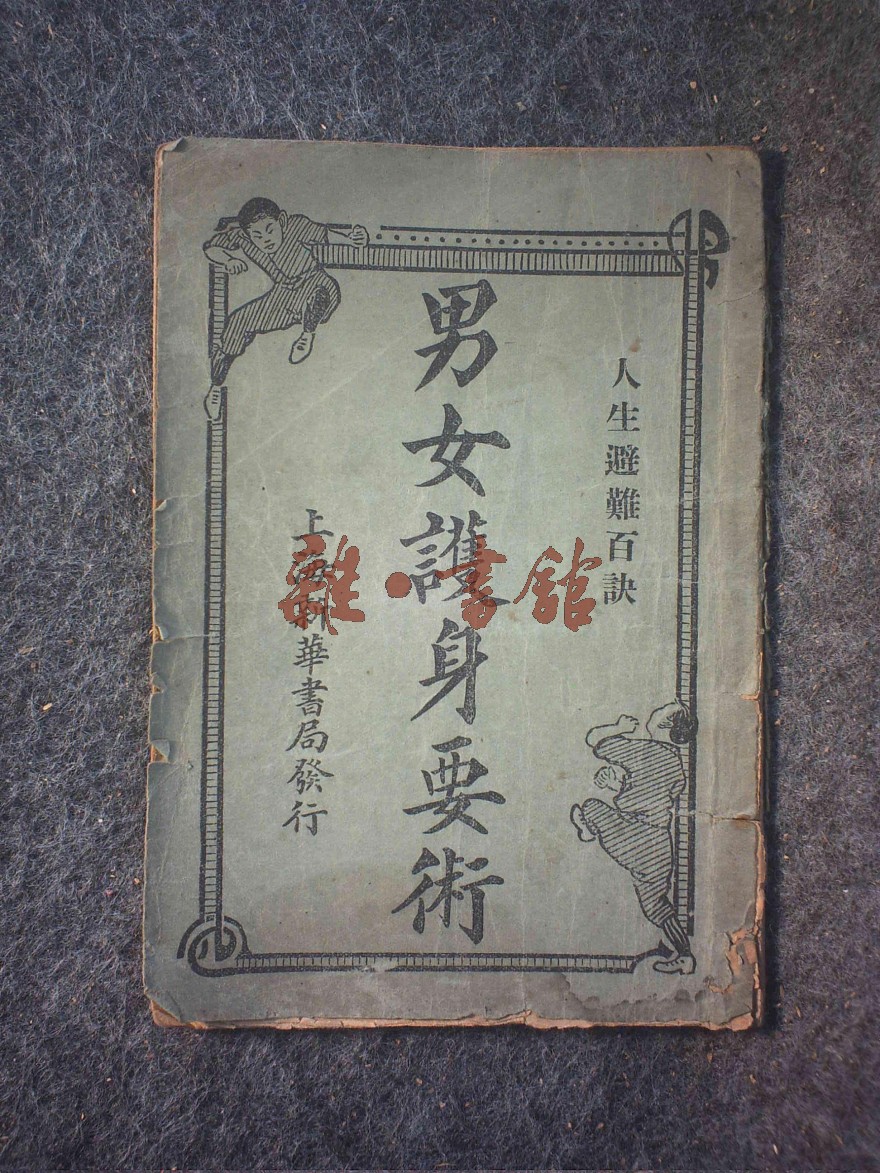 人生避難百訣
男女護身要術
上海新華書局發行
雜·書館